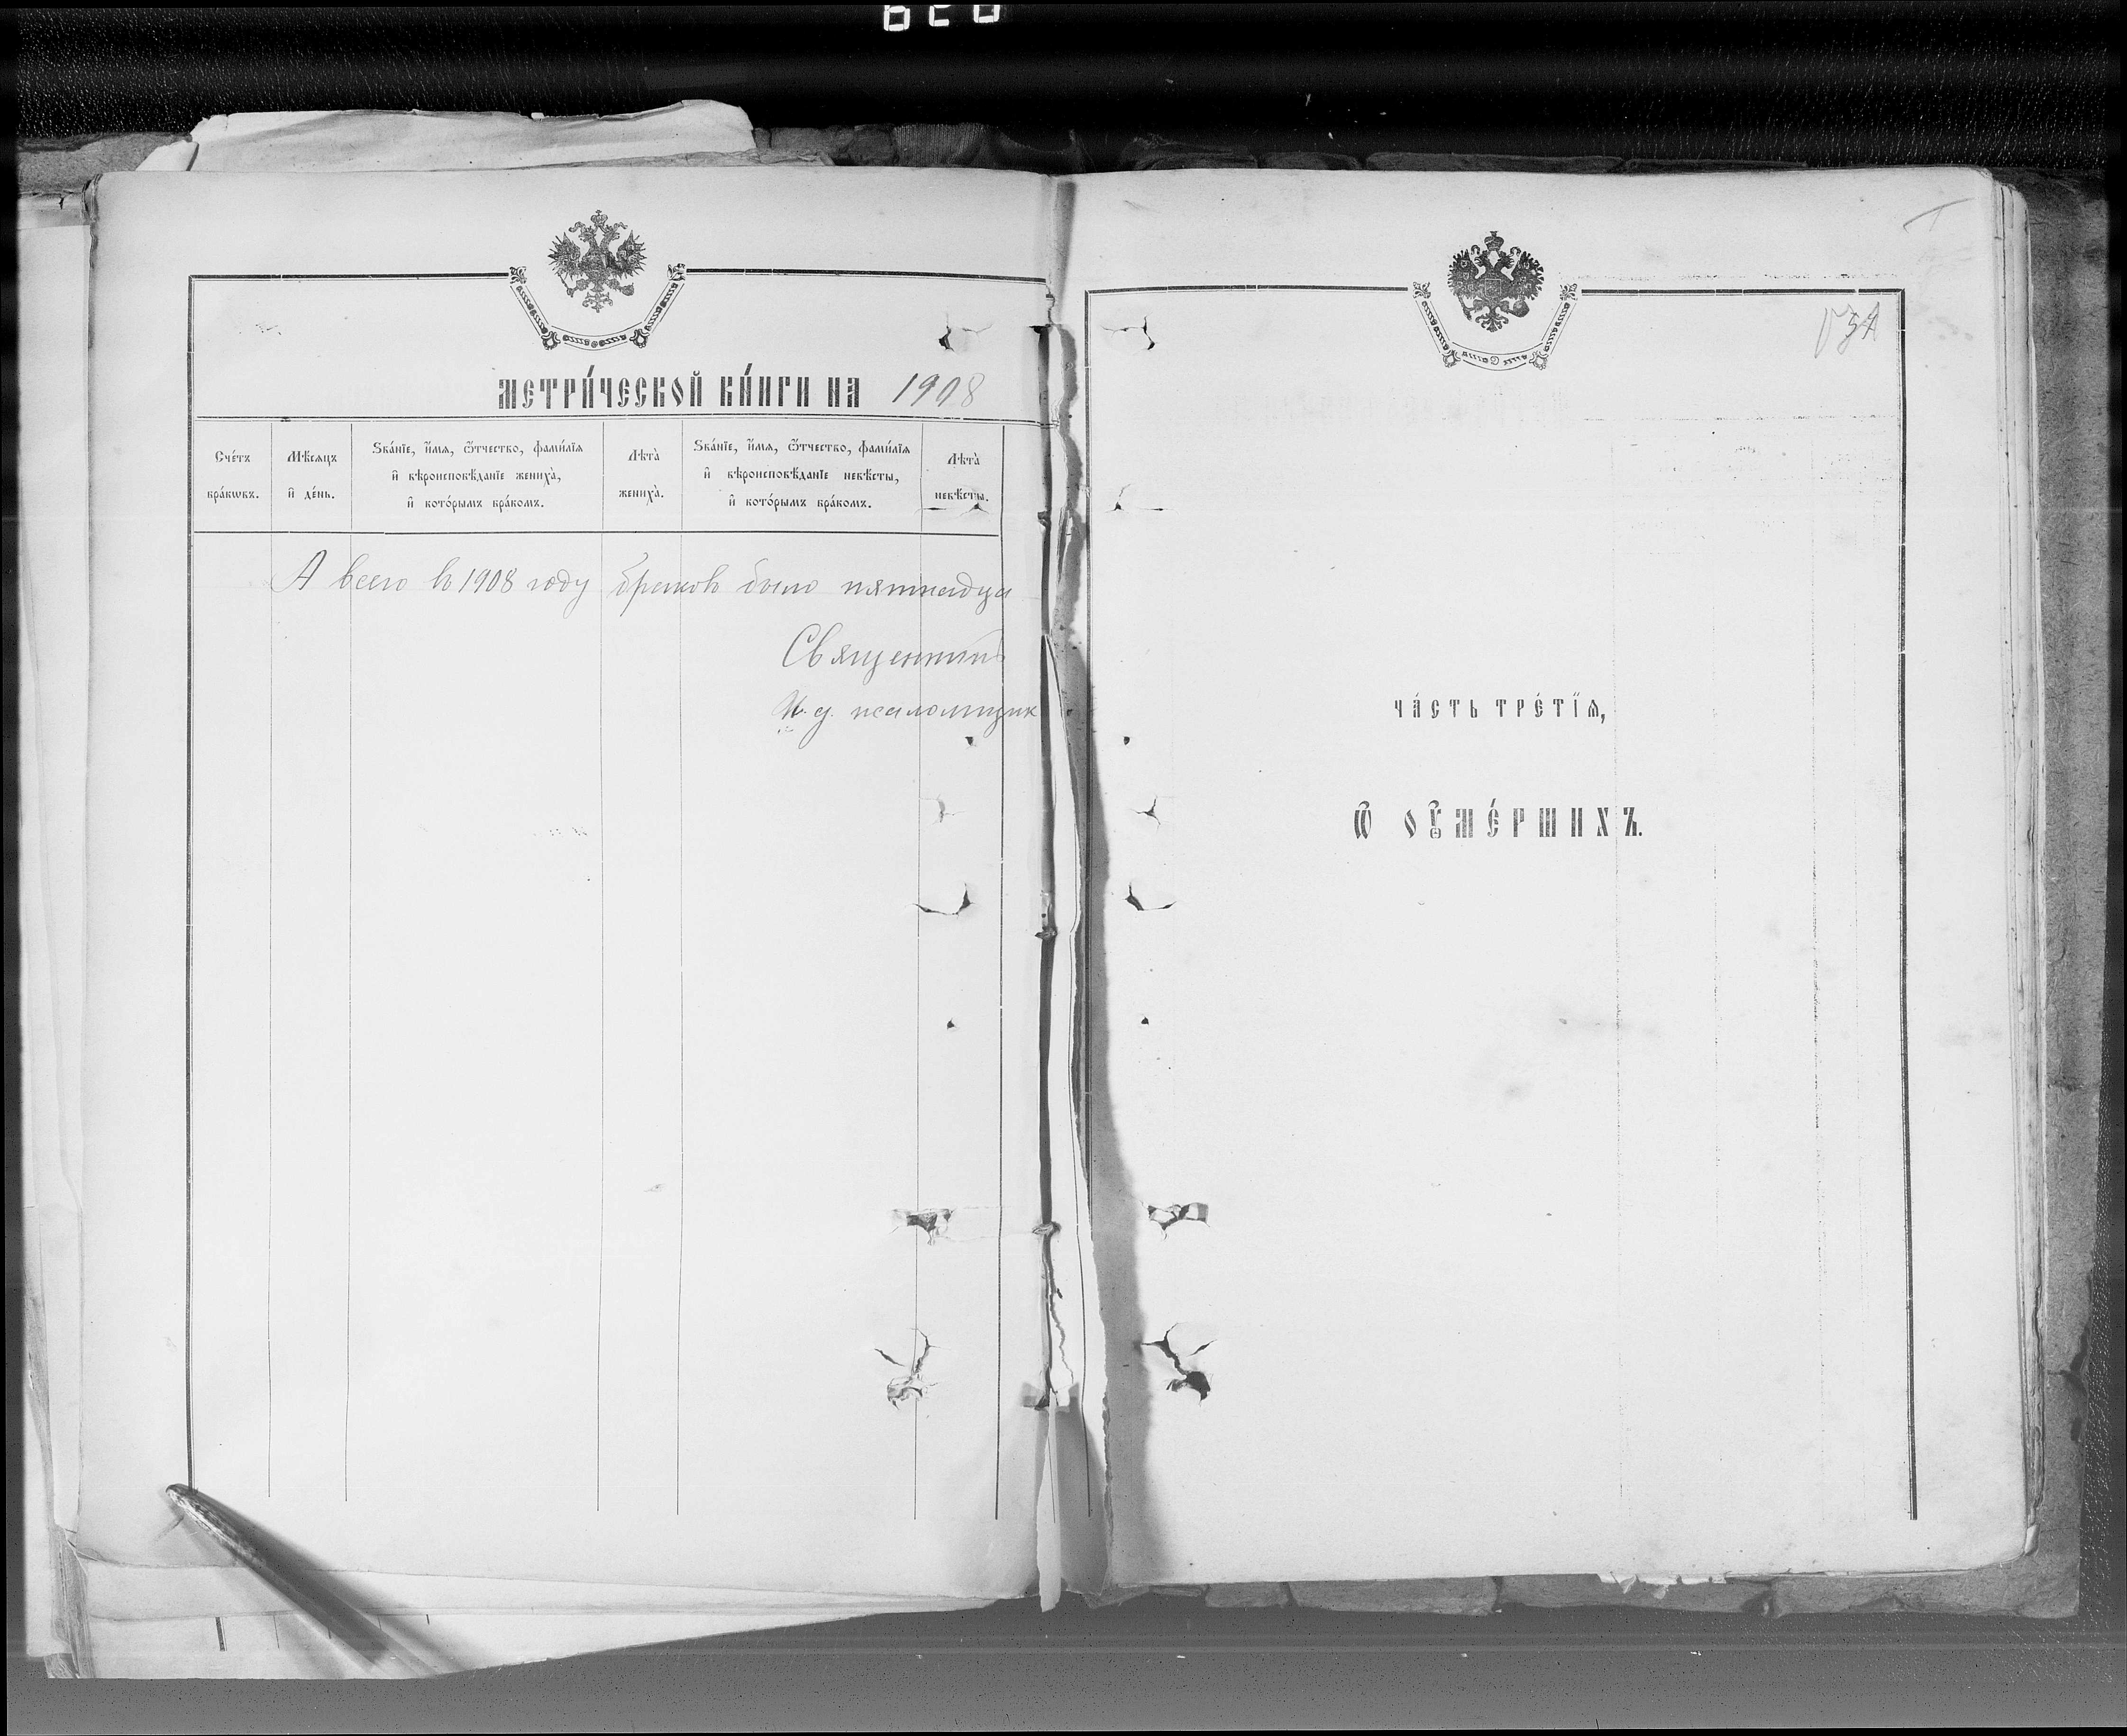 МЕТРИ́ЧЕСКОЙ КНИ́ГИ НА 1908
Сче́тъ бра́кѡвъ.
Мѣ́сяцъ и҆ де́нь.
Ѕва́нїе, и҆́мѧ, ѻ҆́тчество, фами́лїѧ
и҆ вѣроисповѣ́данїе жениха̀,
и҆ кото́рымъ бра́комъ.
Лѣта̀ жениха̀.
Ѕва́нїе, и҆́мѧ, ѻ҆́тчество, фами́лїѧ
и҆ вѣроисповѣ́данїе невѣ́сты,
и҆ кото́рымъ бра́комъ.
Лѣта̀ невѣ́сты.
А всего въ 1908 году браковъ было пятнадца
Священникъ
И. д. псаломщик
ЧА́СТЬ ТРЕ́ТЇѦ,
Ѽ ОУ҆МЕ́РШИХЪ.